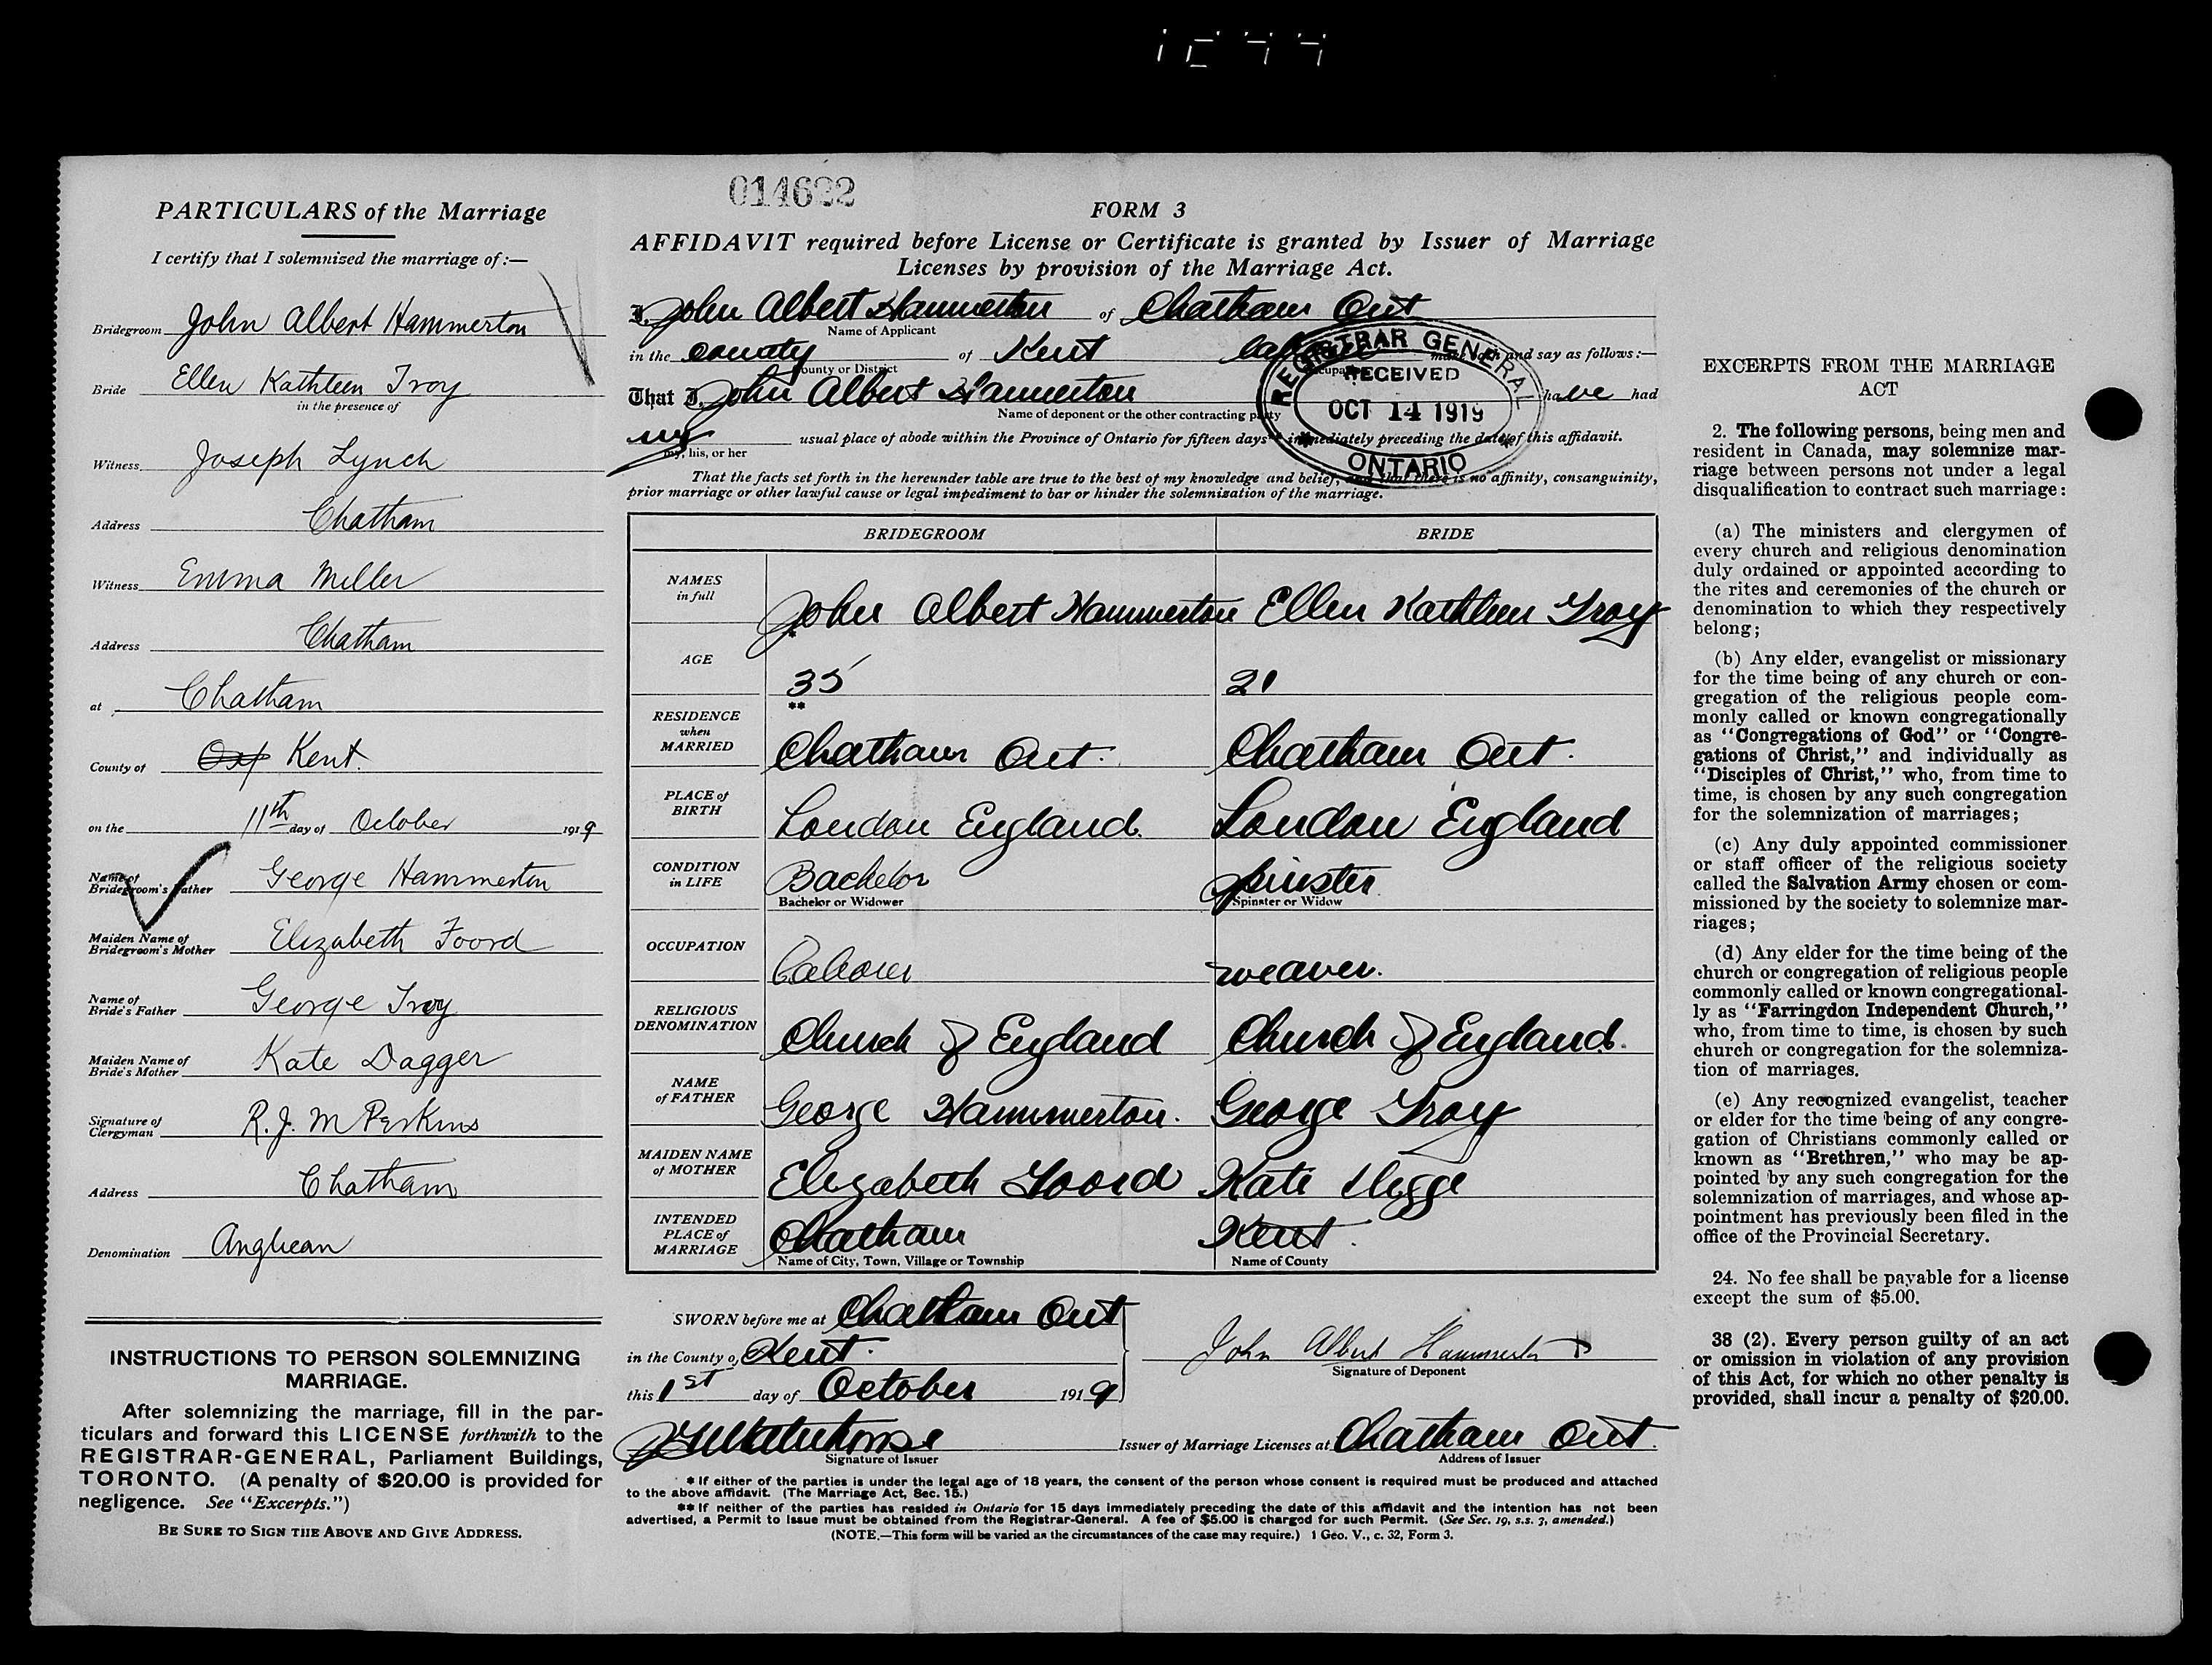 014622
PARTICULARS of the Marriage
I certify that I solemnized the marriage of:—
Bridegroom John Albert Hammerton
Bride Ellen Kathleen Troy
in the presence of
Witness Joseph Lynch
Address Chatham
Witness Emma Miller
Address Chatham
at Chatham
County of Oxf Kent.
on the 11th day of October 1919
Name of
Bridegroom's Father George Hammerton
Maiden Name of
Bridegroom's Mother Elizabeth Foord
Name of
Bride's Father George Troy
Maiden Name of
Bride's Mother Kate Dagger
Signature of
Clergyman R. J. M Perkins
Address Chatham
Denomination Anglican
INSTRUCTIONS TO PERSON SOLEMNIZING
MARRIAGE.
After solemnizing the marriage, fill in the par-
ticulars and forward this LICENSE forthwith to the
REGISTRAR-GENERAL, Parliament Buildings,
TORONTO. (A penalty of $20.00 is provided for
negligence. See "Excerpts.")
BE SURE TO SIGN THE ABOVE AND GIVE ADDRESS.
FORM 3
AFFIDAVIT required before License or Certificate is granted by Issuer of Marriage
Licenses by provision of the Marriage Act.
I, John Albert Hammerton of Chatham Ont
Name of Applicant
in the County of Kent make oath and say as follows:—
County or District
That I, John Albert Hammerton have had
Name of deponent or the other contracting party
my usual place of abode within the Province of Ontario for fifteen days** immediately preceding the date of this affidavit.
my, his, or her
REGISTRAR GENERAL
RECEIVED
OCT 14 1919
ONTARIO
That the facts set forth in the hereunder table are true to the best of my knowledge and belief, and that there is no affinity, consanguinity,
prior marriage or other lawful cause or legal impediment to bar or hinder the solemnization of the marriage.
BRIDEGROOM BRIDE
NAMES
in full John Albert Hammerton Ellen Kathleen Troy
AGE 35 21
**
RESIDENCE
when
MARRIED Chatham Ont. Chatham Ont.
PLACE of
BIRTH London England London England
CONDITION
in LIFE Bachelor Spinster
Bachelor or Widower Spinster or Widow
OCCUPATION Labourer weaver.
RELIGIOUS
DENOMINATION Church of England Church of England.
NAME
of FATHER George Hammerton. George Troy
MAIDEN NAME
of MOTHER Elizabeth Foord Kate
INTENDED
PLACE of
MARRIAGE Chatham Kent.
Name of City, Town, Village or Township Name of County
SWORN before me at Chatham Ont
in the County of Kent.
this 1st day of October 1919
John Albert Hammerton
Signature of Deponent
Signature of Issuer
Issuer of Marriage Licenses at Chatham Ont.
Address of Issuer
* If either of the parties is under the legal age of 18 years, the consent of the person whose consent is required must be produced and attached
to the above affidavit. (The Marriage Act, Sec. 15.)
** If neither of the parties has resided in Ontario for 15 days immediately preceding the date of this affidavit and the intention has not been
advertised, a Permit to Issue must be obtained from the Registrar-General. A fee of $5.00 is charged for such Permit. (See Sec. 19, s.s. 3, amended.)
(NOTE.—This form will be varied as the circumstances of the case may require.) 1 Geo. V., c. 32, Form 3.
EXCERPTS FROM THE MARRIAGE
ACT
2. The following persons, being men and
resident in Canada, may solemnize mar-
riage between persons not under a legal
disqualification to contract such marriage:
(a) The ministers and clergymen of
every church and religious denomination
duly ordained or appointed according to
the rites and ceremonies of the church or
denomination to which they respectively
belong;
(b) Any elder, evangelist or missionary
for the time being of any church or con-
gregation of the religious people com-
monly called or known congregationally
as "Congregations of God" or "Congre-
gations of Christ," and individually as
"Disciples of Christ," who, from time to
time, is chosen by any such congregation
for the solemnization of marriages;
(c) Any duly appointed commissioner
or staff officer of the religious society
called the Salvation Army chosen or com-
missioned by the society to solemnize mar-
riages;
(d) Any elder for the time being of the
church or congregation of religious people
commonly called or known congregational-
ly as "Farringdon Independent Church,"
who, from time to time, is chosen by such
church or congregation for the solemniza-
tion of marriages.
(e) Any recognized evangelist, teacher
or elder for the time being of any congre-
gation of Christians commonly called or
known as "Brethren," who may be ap-
pointed by any such congregation for the
solemnization of marriages, and whose ap-
pointment has previously been filed in the
office of the Provincial Secretary.
24. No fee shall be payable for a license
except the sum of $5.00.
38 (2). Every person guilty of an act
or omission in violation of any provision
of this Act, for which no other penalty is
provided, shall incur a penalty of $20.00.